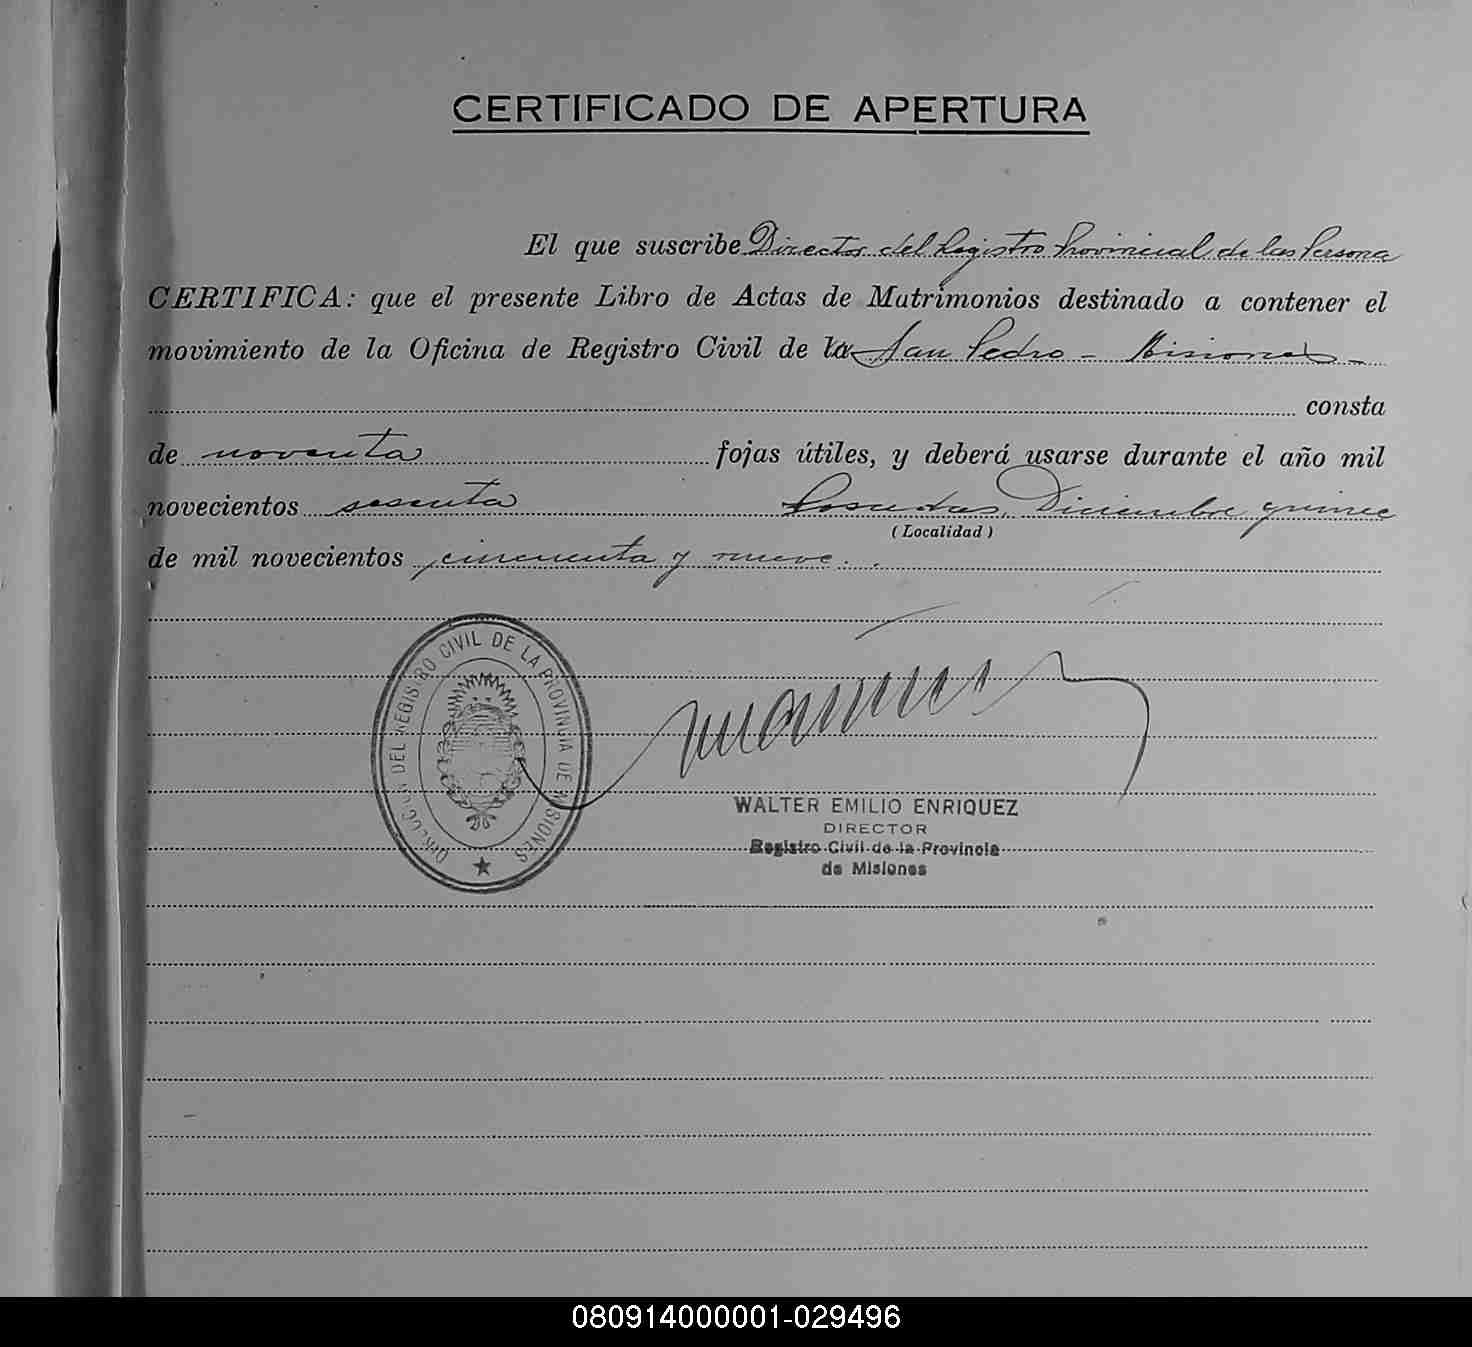 CERTIFICADO DE APERTURA
El que suscribe Director del Registro Provincial de las Persona
CERTIFICA: que el presente Libro de Actas de Matrimonios destinado a contener el
movimiento de la Oficina de Registro Civil de la San Pedro - Misiones -
consta
de noventa fojas útiles, y deberá usarse durante el año mil
novecientos sesenta Posadas, Diciembre quince
(Localidad)
de mil novecientos cincuenta y nueve.
DIRECCION DEL REGISTRO CIVIL DE LA PROVINCIA DE MISIONES
WALTER EMILIO ENRIQUEZ
DIRECTOR
Registro Civil de la Provincia
de Misiones
080914000001-029496